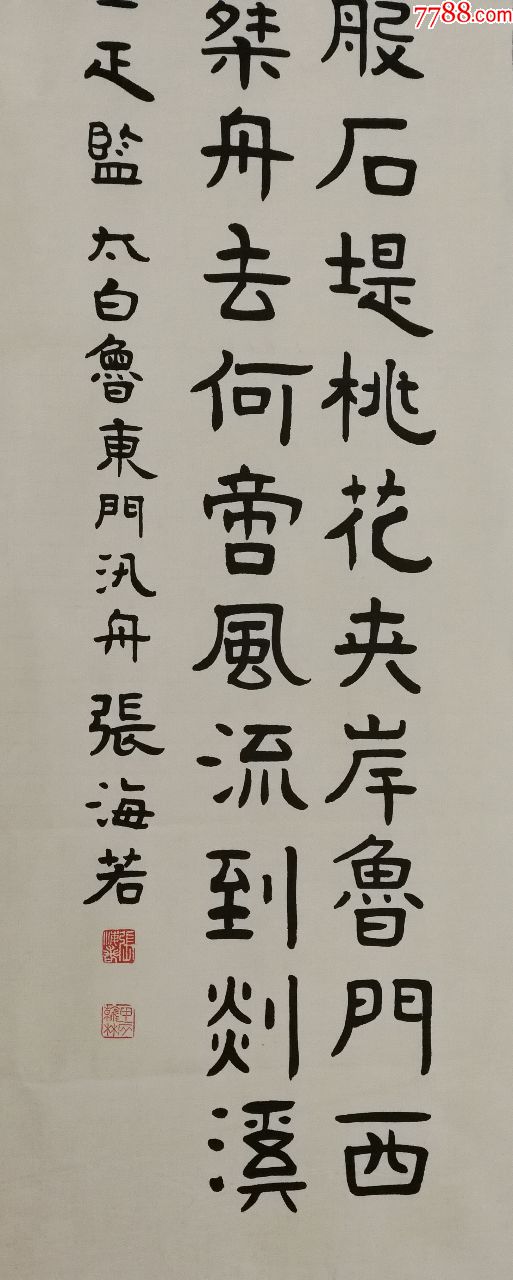 7788.com
般石堤桃花夾岸魯門西
桀舟去何啻風流到剡溪
正監 太白魯東門汎舟 張海若
甲辰翰林